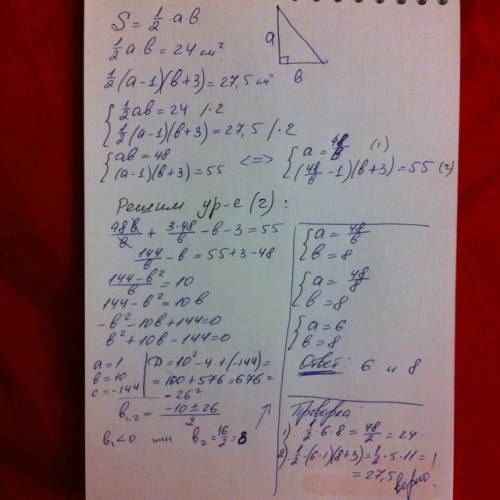 S = 1/2 · a·в.
a
в
1/2 a·в = 24 см².
1/2 (a-1)(в+3) = 27,5 см².
{ 1/2 aв = 24 /·2
{ 1/2 (a-1)(в+3) = 27,5 /·2
{ aв = 48
{ (a-1)(в+3) = 55
<=>
{ a = 48/в (1)
{ (48/в - 1)(в+3) = 55 (2)
Решим ур-е (2):
48в/в + 3·48/в - в - 3 = 55
144/в - в = 55 + 3 - 48
(144 - в²)/в = 10
144 - в² = 10в
-в² - 10в + 144 = 0
в² + 10в - 144 = 0
a = 1
в = 10
c = -144
D = 10² - 4·1·(-144) =
= 100 + 576 = 676 =
= 26²
в₁,₂ = (-10 ± 26)/2
в₁ < 0
в₂ = 16/2 = 8
{ a = 48/в
{ в = 8
{ a = 48/8
{ в = 8
{ a = 6
{ в = 8
Ответ: 6 и 8
Проверка:
1) 1/2 · 6 · 8 = 48/2 = 24
2) 1/2 · (6-1)(8+3) = 1/2 · 5 · 11 =
= 27,5
верно.